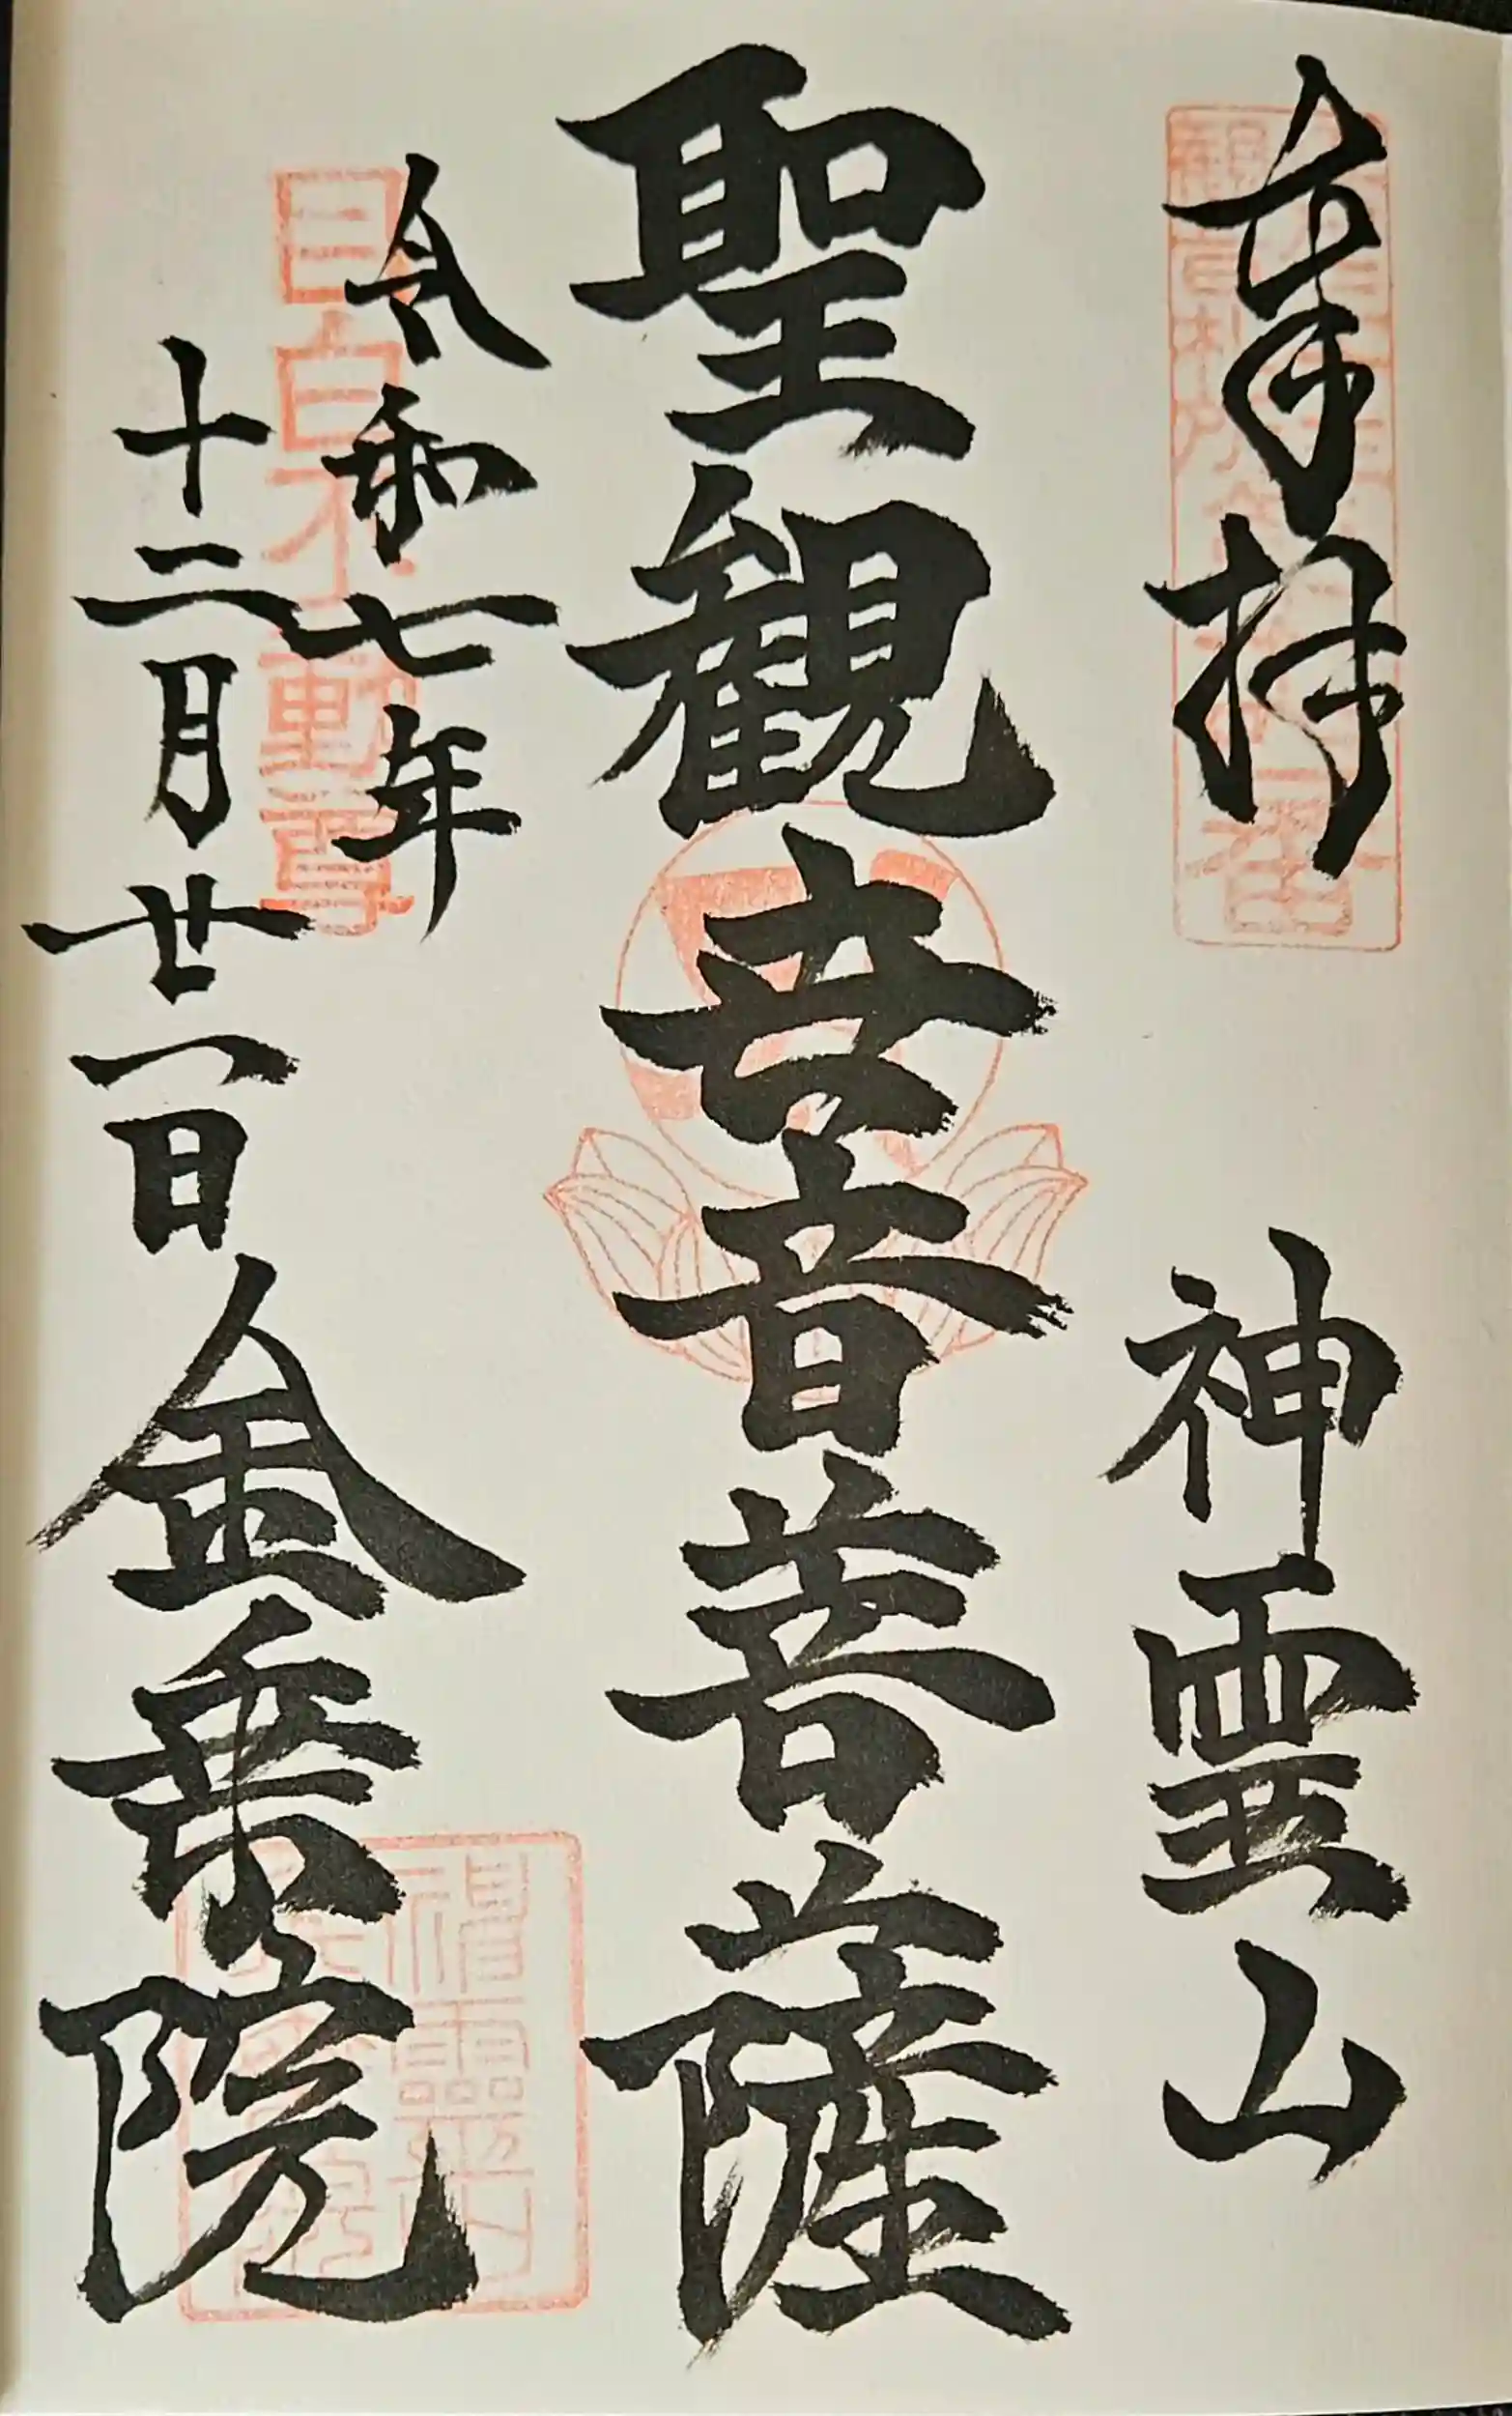 奉拝
神霊山
聖観世音菩薩
令和七年
十二月廿一日
金乗院
目白不動尊